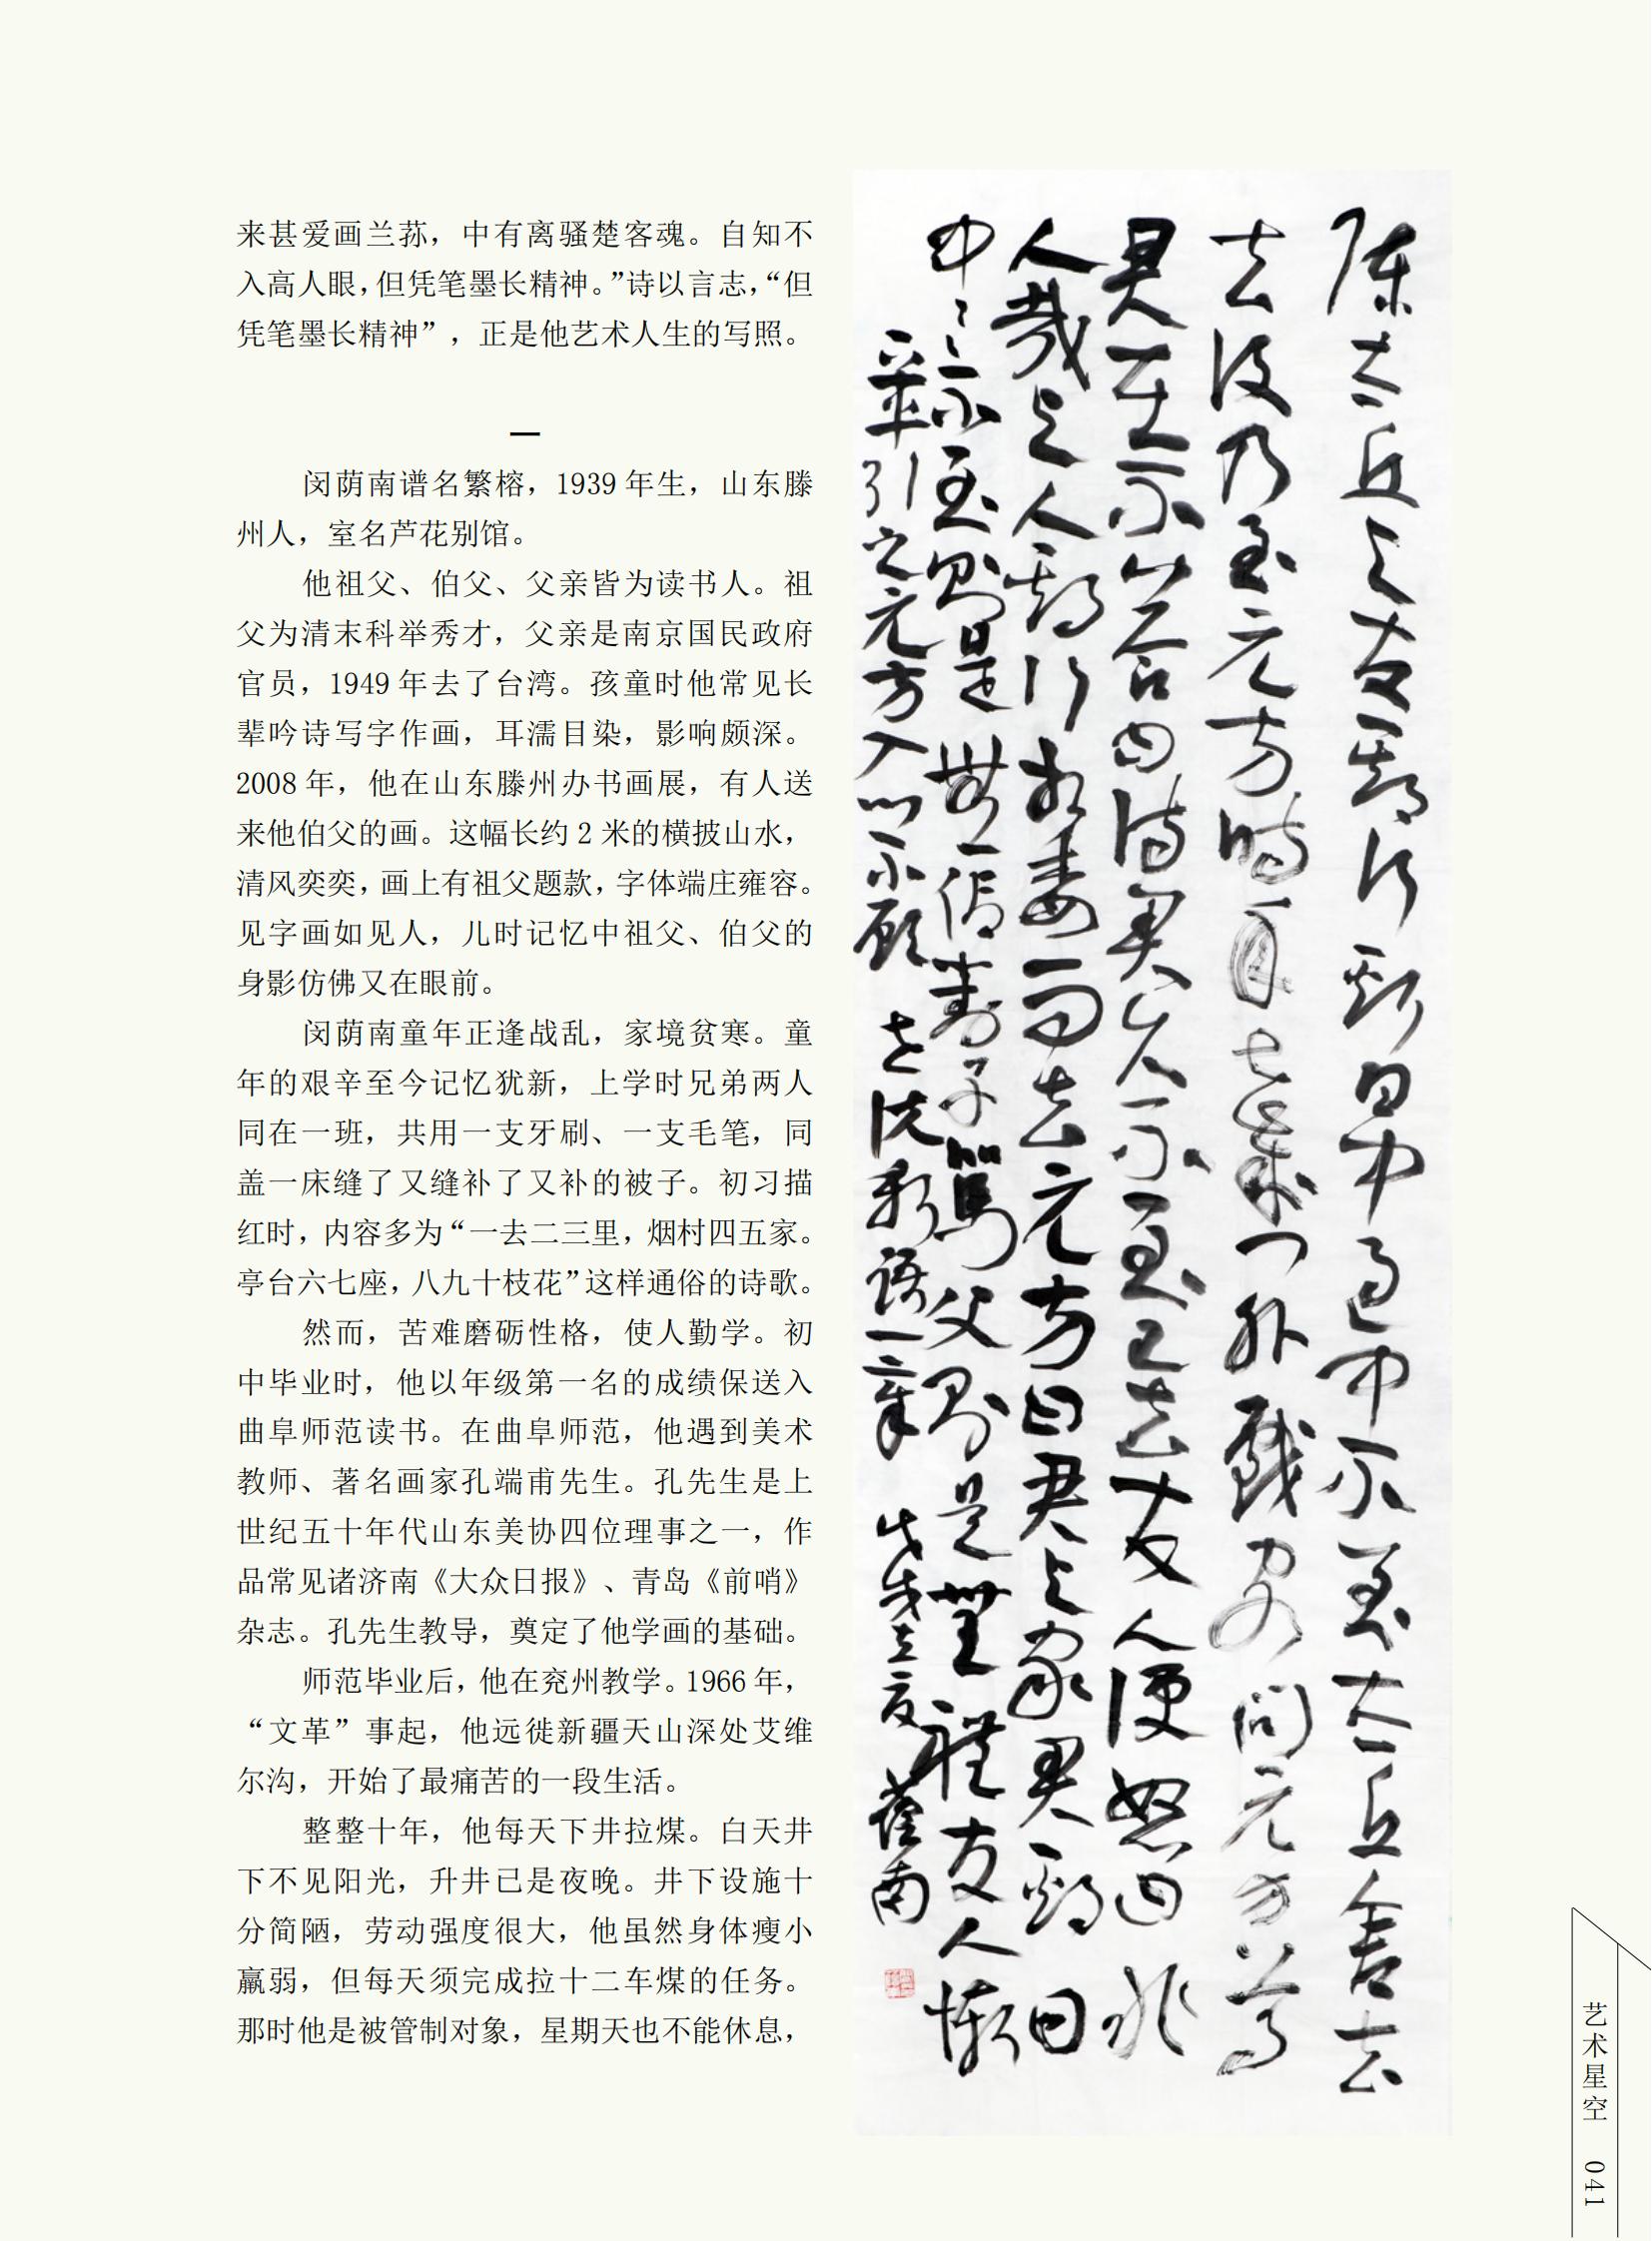 来甚爱画兰荪，中有离骚楚客魂。自知不
入高人眼，但凭笔墨长精神。”诗以言志，“但
凭笔墨长精神”，正是他艺术人生的写照。
一
闵荫南谱名繁榕，1939 年生，山东滕
州人，室名芦花别馆。
他祖父、伯父、父亲皆为读书人。祖
父为清末科举秀才，父亲是南京国民政府
官员，1949 年去了台湾。孩童时他常见长
辈吟诗写字作画，耳濡目染，影响颇深。
2008 年，他在山东滕州办书画展，有人送
来他伯父的画。这幅长约 2 米的横披山水，
清风奕奕，画上有祖父题款，字体端庄雍容。
见字画如见人，儿时记忆中祖父、伯父的
身影仿佛又在眼前。
闵荫南童年正逢战乱，家境贫寒。童
年的艰辛至今记忆犹新，上学时兄弟两人
同在一班，共用一支牙刷、一支毛笔，同
盖一床缝了又缝补了又补的被子。初习描
红时，内容多为“一去二三里，烟村四五家。
亭台六七座，八九十枝花”这样通俗的诗歌。
然而，苦难磨砺性格，使人勤学。初
中毕业时，他以年级第一名的成绩保送入
曲阜师范读书。在曲阜师范，他遇到美术
教师、著名画家孔端甫先生。孔先生是上
世纪五十年代山东美协四位理事之一，作
品常见诸济南《大众日报》、青岛《前哨》
杂志。孔先生教导，奠定了他学画的基础。
师范毕业后，他在兖州教学。1966 年，
“文革”事起，他远徙新疆天山深处艾维
尔沟，开始了最痛苦的一段生活。
整整十年，他每天下井拉煤。白天井
下不见阳光，升井已是夜晚。井下设施十
分简陋，劳动强度很大，他虽然身体瘦小
羸弱，但每天须完成拉十二车煤的任务。
那时他是被管制对象，星期天也不能休息，
陈太丘与友期行期日中过中不至太丘舍去
去后乃至元方时年七岁门外戏客问元方尊
君在不答曰待君久不至已去友人便怒曰非
人哉与人期行相委而去元方曰君与家君期日
中中不至则是无信对子骂父则是无礼友人惭
下车引之元方入门不顾 世说新语一章 戊戌立夏荫南
艺术星空 041